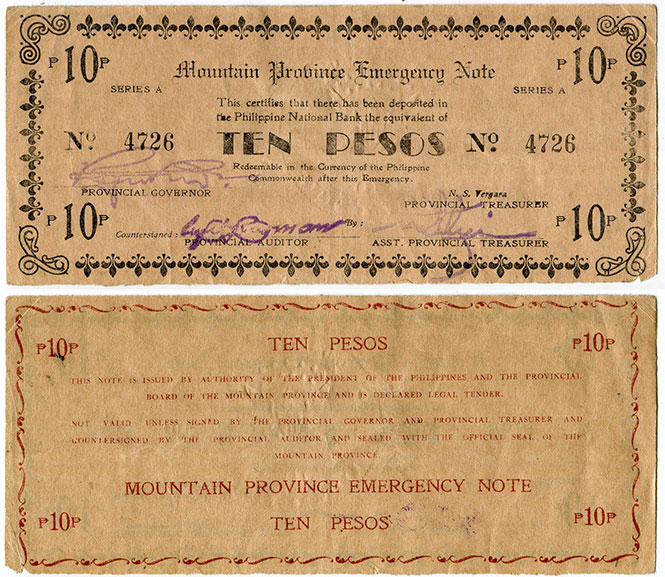 ₱10₱ ₱10₱
Mountain Province Emergency Note
SERIES A SERIES A
This certifies that there has been deposited in
the Philippine National Bank the equivalent of
Nº 4726 TEN PESOS Nº 4726
Redeemable in the Currency of the Philippine
Commonwealth after this Emergency.
PROVINCIAL GOVERNOR
N. S. Vergara
PROVINCIAL TREASURER
₱10₱ ₱10₱
Countersigned: By:
PROVINCIAL AUDITOR ASST. PROVINCIAL TREASURER
₱10₱ TEN PESOS ₱10₱
THIS NOTE IS ISSUED BY AUTHORITY OF THE PRESIDENT OF THE PHILIPPINES AND THE PROVINCIAL
BOARD OF THE MOUNTAIN PROVINCE AND IS DECLARED LEGAL TENDER.
NOT VALID UNLESS SIGNED BY THE PROVINCIAL GOVERNOR AND PROVINCIAL TREASURER AND
COUNTERSIGNED BY THE PROVINCIAL AUDITOR AND SEALED WITH THE OFFICIAL SEAL OF THE
MOUNTAIN PROVINCE
MOUNTAIN PROVINCE EMERGENCY NOTE
₱10₱ TEN PESOS ₱10₱